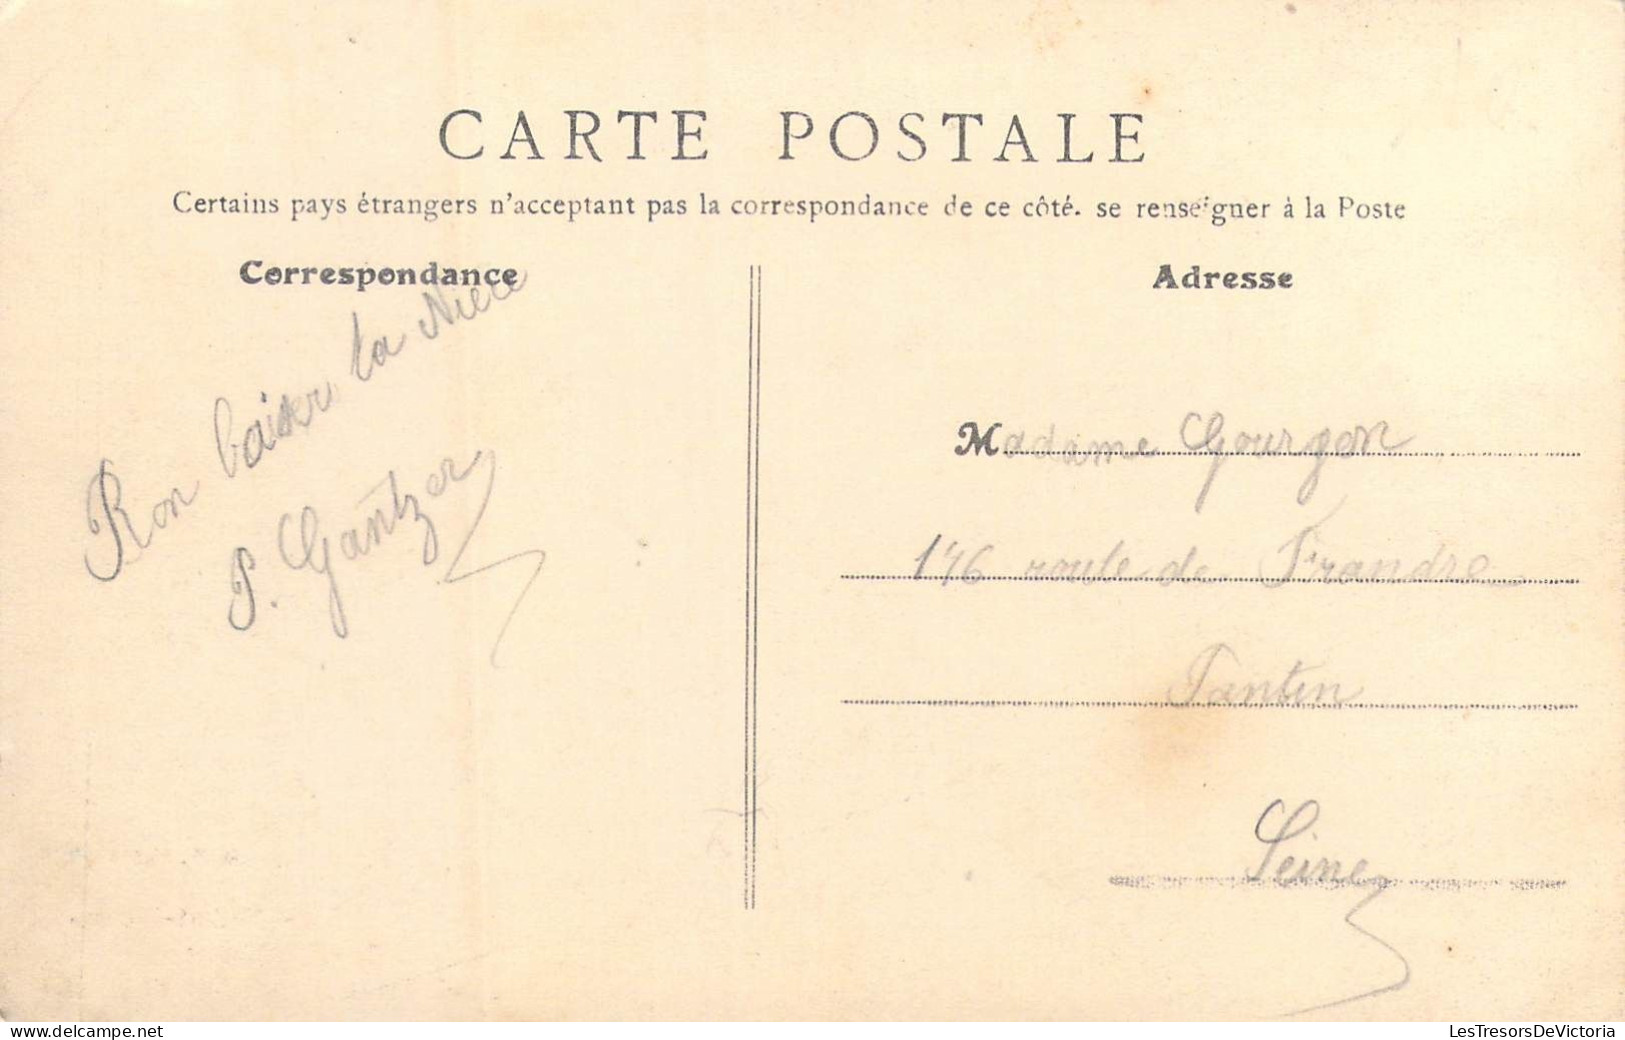 CARTE POSTALE
Certains pays étrangers n'acceptant pas la correspondance de ce côté. se renseigner à la Poste
Correspondance
Adresse
Bon baiser ta Niece
P. Gantzer
Madame Gourgon
146 route de Frandre
Pantin
Seine
LesTresorsDeVictoria